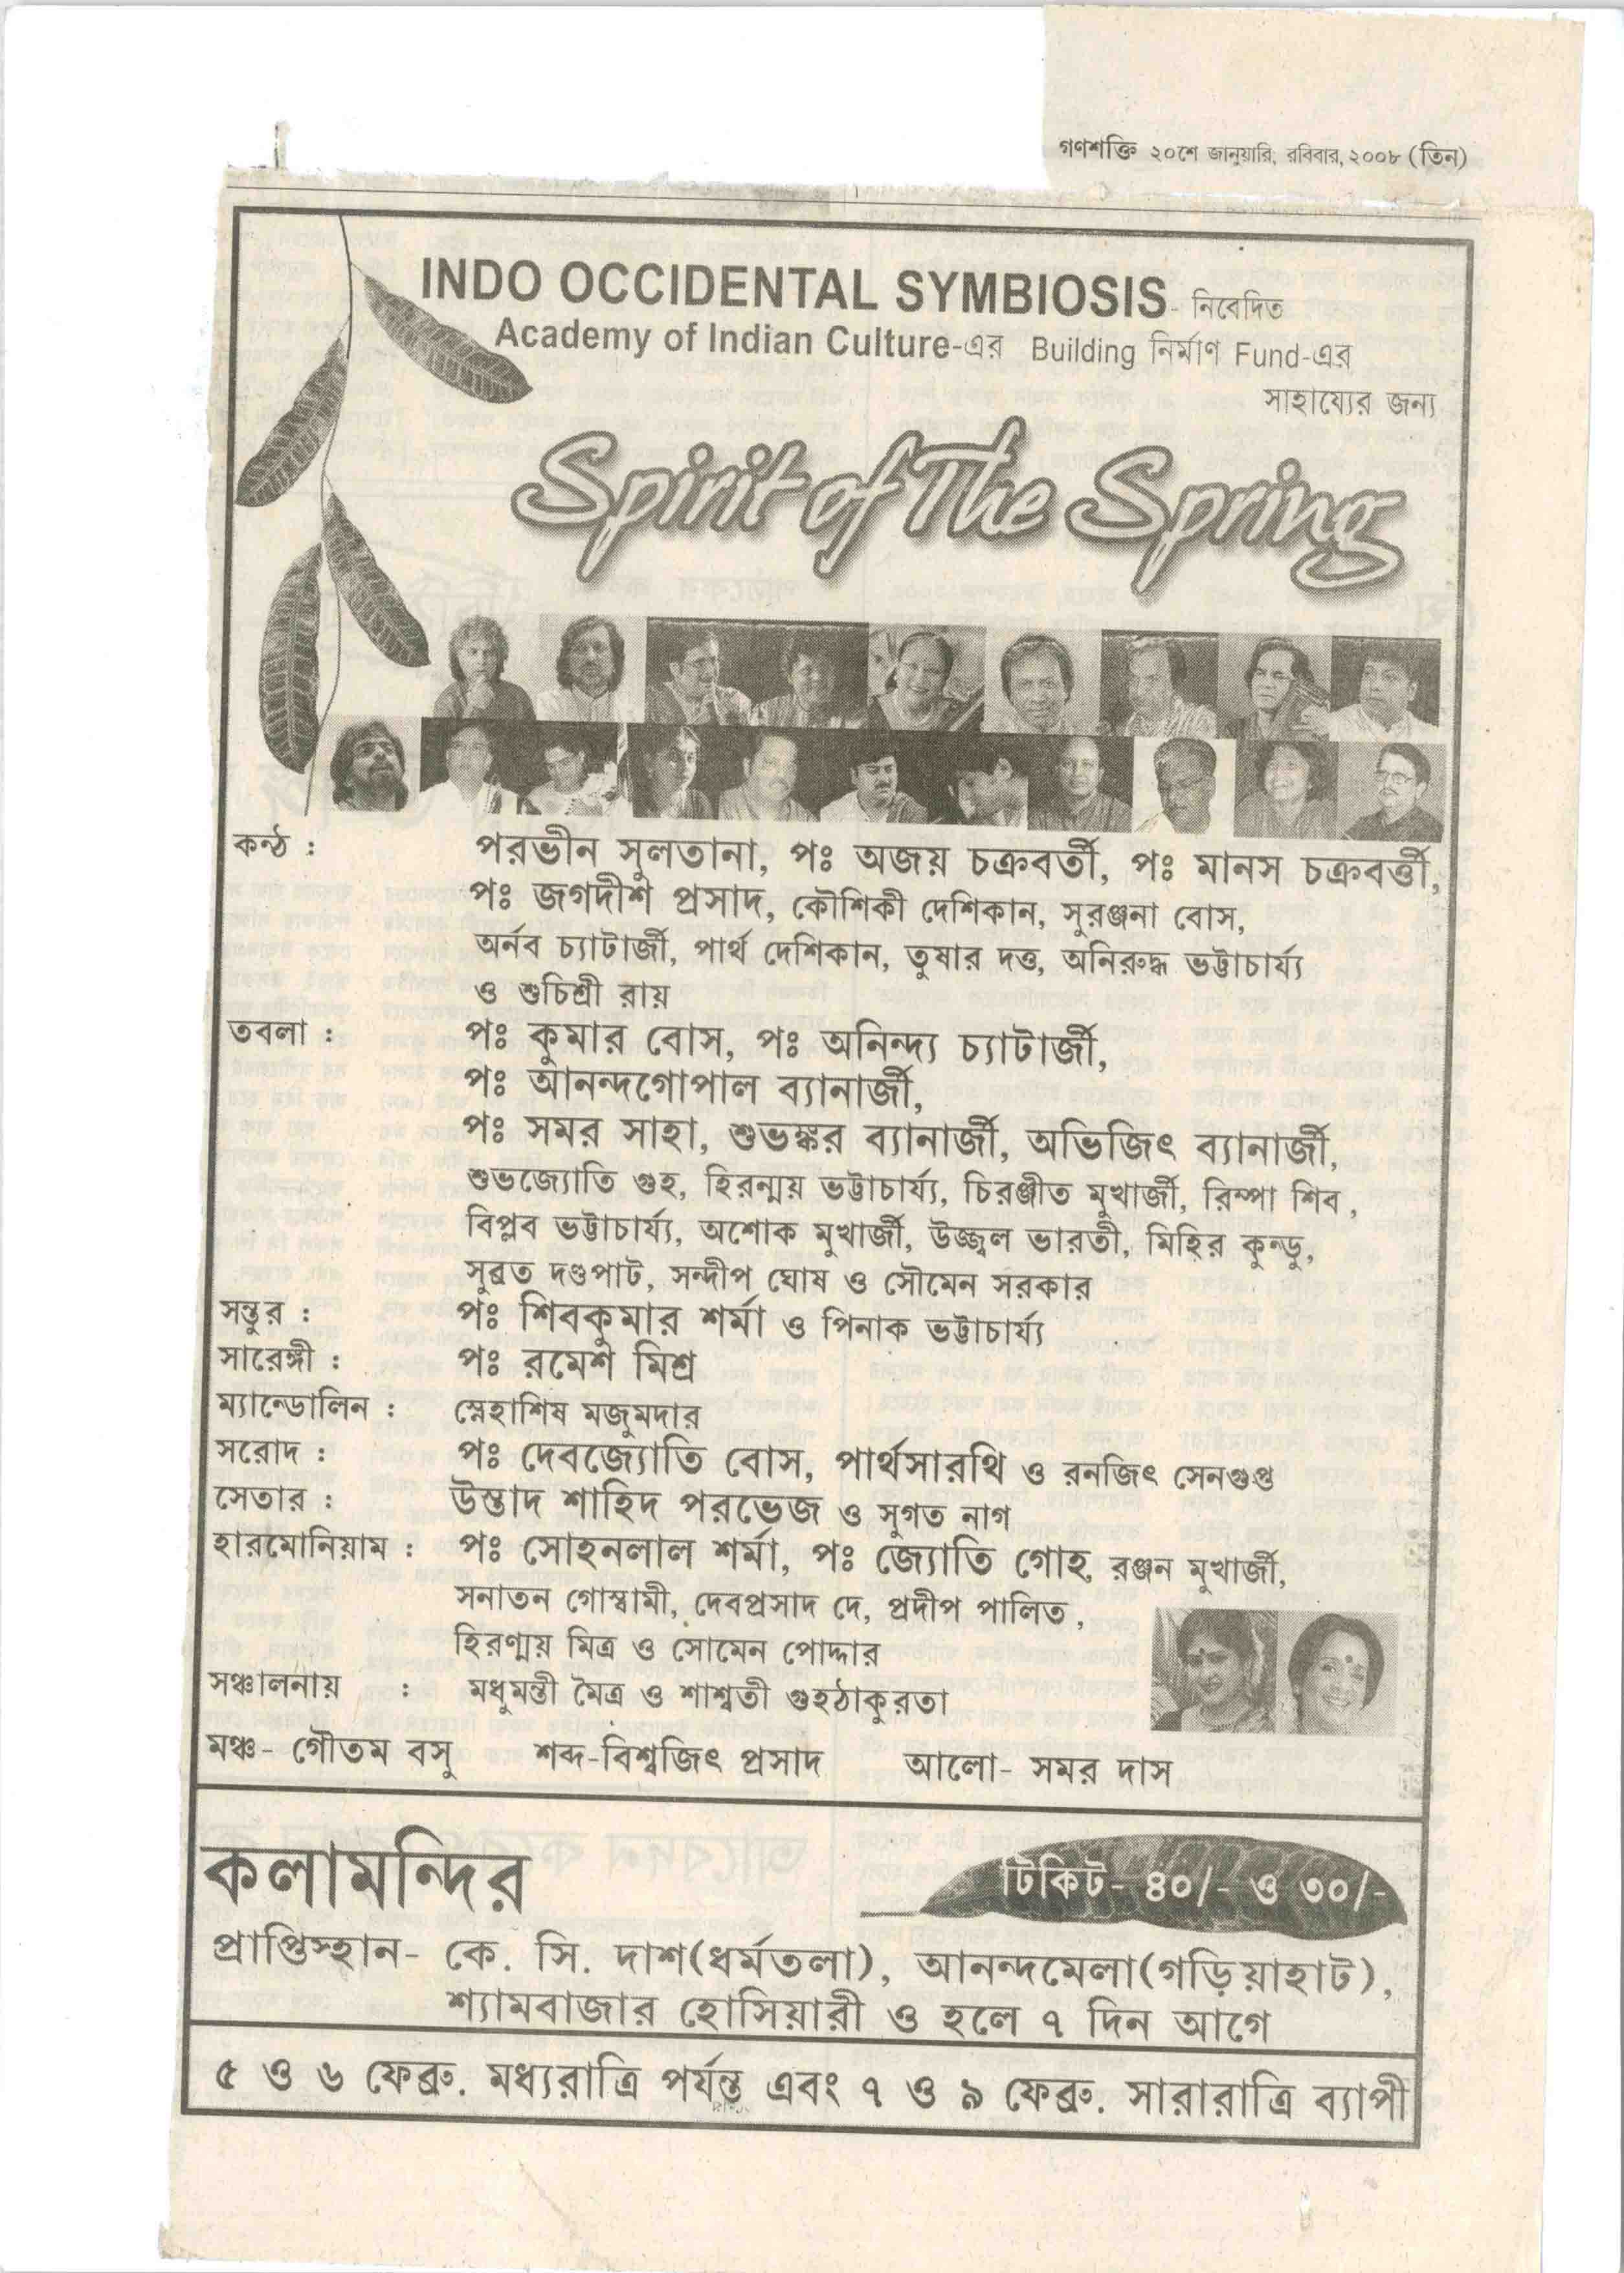 গণশক্তি ২০শে জানুয়ারি, রবিবার, ২০০৮ (তিন)
INDO OCCIDENTAL SYMBIOSIS- নিবেদিত
Academy of Indian Culture-এর Building নির্মাণ Fund-এর
সাহায্যের জন্য
Spirit of The Spring
কন্ঠ : পরভীন সুলতানা, পঃ অজয় চক্রবর্তী, পঃ মানস চক্রবর্ত্তী,
পঃ জগদীশ প্রসাদ, কৌশিকী দেশিকান, সুরঞ্জনা বোস,
অর্নব চ্যাটার্জী, পার্থ দেশিকান, তুষার দত্ত, অনিরুদ্ধ ভট্টাচার্য্য
ও শুচিশ্রী রায়
তবলা : পঃ কুমার বোস, পঃ অনিন্দ্য চ্যাটার্জী,
পঃ আনন্দগোপাল ব্যানার্জী,
পঃ সমর সাহা, শুভঙ্কর ব্যানার্জী, অভিজিৎ ব্যানার্জী,
শুভজ্যোতি গুহ, হিরন্ময় ভট্টাচার্য্য, চিরঞ্জীত মুখার্জী, রিম্পা শিব,
বিপ্লব ভট্টাচার্য্য, অশোক মুখার্জী, উজ্জ্বল ভারতী, মিহির কুন্ডু,
সুব্রত দণ্ডপাট, সন্দীপ ঘোষ ও সৌমেন সরকার
সন্তুর : পঃ শিবকুমার শর্মা ও পিনাক ভট্টাচার্য্য
সারেঙ্গী : পঃ রমেশ মিশ্র
ম্যান্ডোলিন : স্নেহাশিষ মজুমদার
সরোদ : পঃ দেবজ্যোতি বোস, পার্থসারথি ও রনজিৎ সেনগুপ্ত
সেতার : উস্তাদ শাহিদ পরভেজ ও সুগত নাগ
হারমোনিয়াম : পঃ সোহনলাল শর্মা, পঃ জ্যোতি গোহ, রঞ্জন মুখার্জী,
সনাতন গোস্বামী, দেবপ্রসাদ দে, প্রদীপ পালিত,
হিরণ্ময় মিত্র ও সোমেন পোদ্দার
সঞ্চালনায় : মধুমন্তী মৈত্র ও শাশ্বতী গুহঠাকুরতা
মঞ্চ- গৌতম বসু শব্দ-বিশ্বজিৎ প্রসাদ আলো- সমর দাস
কলামন্দির
টিকিট- ৪০/- ও ৩০/-
প্রাপ্তিস্হান- কে. সি. দাশ(ধর্মতলা), আনন্দমেলা(গড়িয়াহাট),
শ্যামবাজার হোসিয়ারী ও হলে ৭ দিন আগে
৫ ও ৬ ফেব্রু. মধ্যরাত্রি পর্যন্ত এবং ৭ ও ৯ ফেব্রু. সারারাত্রি ব্যাপী